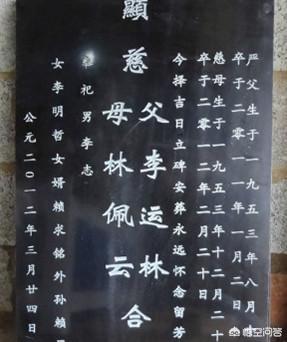 严父生于一九五三年八月
卒于二零一一年一月二日
慈母生于一九五三年十二月二十
卒于二零一二年二月二十日
今择吉日立碑安葬永远怀念留芳
父李运林
顯慈母林佩云合
祀男李志
女李明哲女婿賴求铭外孙賴
公元二〇一二年三月廿四日
悟空问答